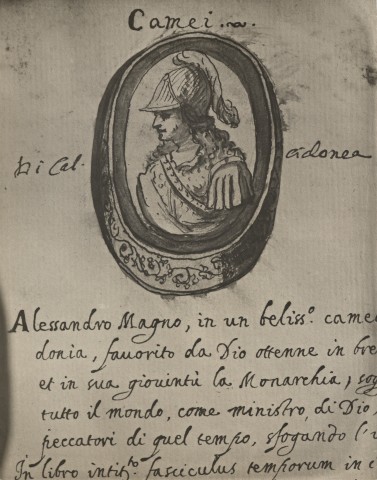 Camei.
Di Cal. cidonea
Alessandro Magno, in un beliss.o came
donia, fauorito da Dio ottenne in bre
et in sua giouintù la Monarchia, sog
tutto il mondo, come ministro, di Dio,
peccatori di quel tempo, sfogando l'i
In libro intit.to fasciculus temporum in c